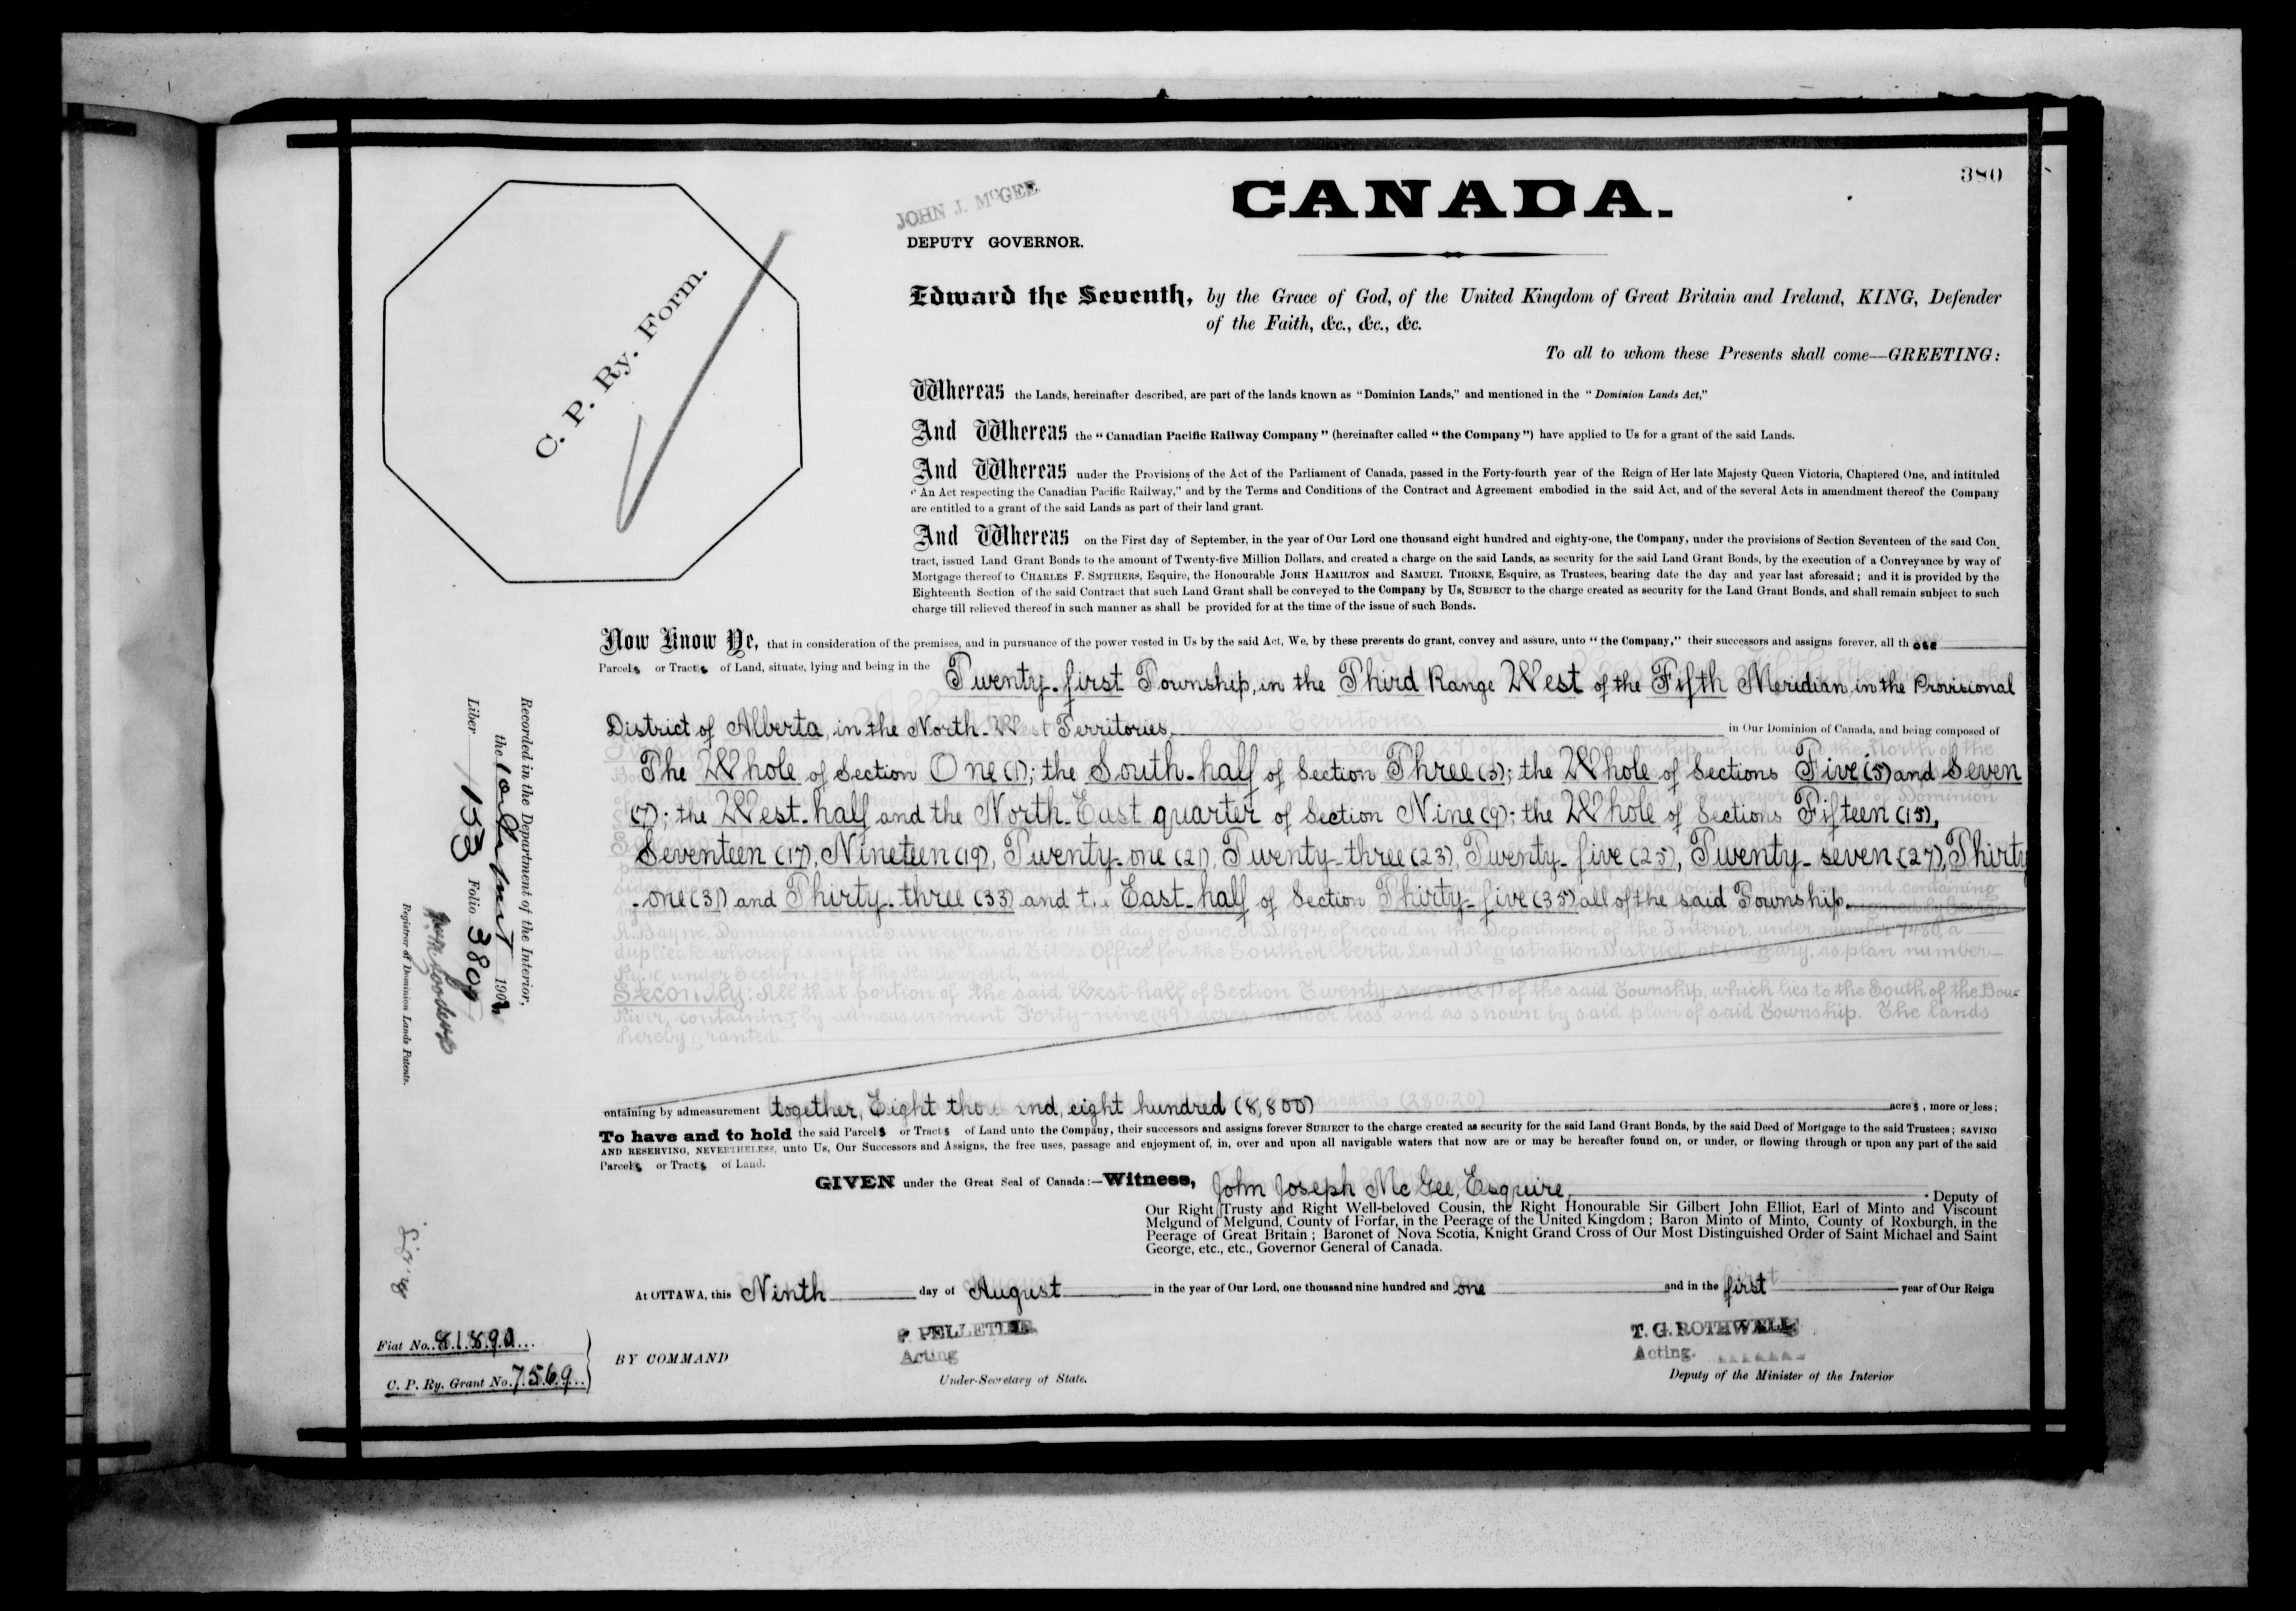 380
CANADA.
JOHN J. McGEE
DEPUTY GOVERNOR.
C. P. Ry. Form.
Edward the Seventh, by the Grace of God, of the United Kingdom of Great Britain and Ireland, KING, Defender
of the Faith, &c., &c., &c.
To all to whom these Presents shall come—GREETING:
Whereas the Lands, hereinafter described, are part of the lands known as "Dominion Lands," and mentioned in the "Dominion Lands Act,"
And Whereas the "Canadian Pacific Railway Company" (hereinafter called "the Company") have applied to Us for a grant of the said Lands.
And Whereas under the Provisions of the Act of the Parliament of Canada, passed in the Forty-fourth year of the Reign of Her late Majesty Queen Victoria, Chaptered One, and intituled
"An Act respecting the Canadian Pacific Railway," and by the Terms and Conditions of the Contract and Agreement embodied in the said Act, and of the several Acts in amendment thereof the Company
are entitled to a grant of the said Lands as part of their land grant.
And Whereas on the First day of September, in the year of Our Lord one thousand eight hundred and eighty-one, the Company, under the provisions of Section Seventeen of the said Con-
tract, issued Land Grant Bonds to the amount of Twenty-five Million Dollars, and created a charge on the said Lands, as security for the said Land Grant Bonds, by the execution of a Conveyance by way of
Mortgage thereof to CHARLES F. SMITHERS, Esquire, the Honourable JOHN HAMILTON and SAMUEL THORNE, Esquire, as Trustees, bearing date the day and year last aforesaid; and it is provided by the
Eighteenth Section of the said Contract that such Land Grant shall be conveyed to the Company by Us, SUBJECT to the charge created as security for the Land Grant Bonds, and shall remain subject to such
charge till relieved thereof in such manner as shall be provided for at the time of the issue of such Bonds.
Now Know Ye, that in consideration of the premises, and in pursuance of the power vested in Us by the said Act, We, by these prerents do grant, convey and assure, unto "the Company," their successors and assigns forever, all those
Parcels or Tracts of Land, situate, lying and being in the Twenty-first Township, in the Third Range West of the Fifth Meridian, in the Provisional
District of Alberta, in the North-West Territories, in Our Dominion of Canada, and being composed of
The Whole of Section One (1); the South-half of Section Three (3); the Whole of Sections Five (5) and Seven
(7); the West-half and the North-East quarter of Section Nine (9); the Whole of Sections Fifteen (15),
Seventeen (17), Nineteen (19), Twenty-one (21), Twenty-three (23), Twenty-five (25), Twenty-seven (27), Thirty
-one (31) and Thirty-three (33) and the East-half of Section Thirty-five (35) all of the said Township.
ontaining by admeasurement together, Eight thousand, eight hundred (8,800) acres, more or less;
To have and to hold the said Parcels or Tracts of Land unto the Company, their successors and assigns forever SUBJECT to the charge created as security for the said Land Grant Bonds, by the said Deed of Mortgage to the said Trustees; SAVING
AND RESERVING, NEVERTHELESS, unto Us, Our Successors and Assigns, the free uses, passage and enjoyment of, in, over and upon all navigable waters that now are or may be hereafter found on, or under, or flowing through or upon any part of the said
Parcels or Tracts of Land.
GIVEN under the Great Seal of Canada:—Witness, John Joseph McGee, Esquire, Deputy of
Our Right Trusty and Right Well-beloved Cousin, the Right Honourable Sir Gilbert John Elliot, Earl of Minto and Viscount
Melgund of Melgund, County of Forfar, in the Peerage of the United Kingdom; Baron Minto of Minto, County of Roxburgh, in the
Peerage of Great Britain; Baronet of Nova Scotia, Knight Grand Cross of Our Most Distinguished Order of Saint Michael and Saint
George, etc., etc., Governor General of Canada.
At OTTAWA, this Ninth day of August in the year of Our Lord, one thousand nine hundred and one and in the first year of Our Reign
P. PELLETIER
Acting
BY COMMAND
Under-Secretary of State.
T. G. ROTHWELL
Acting.
Deputy of the Minister of the Interior
Fiat No. 81890
C. P. Ry. Grant No. 7569
Recorded in the Department of the Interior,
the 190
Liber 153 Folio 380
Registrar of Dominion Lands Patents.